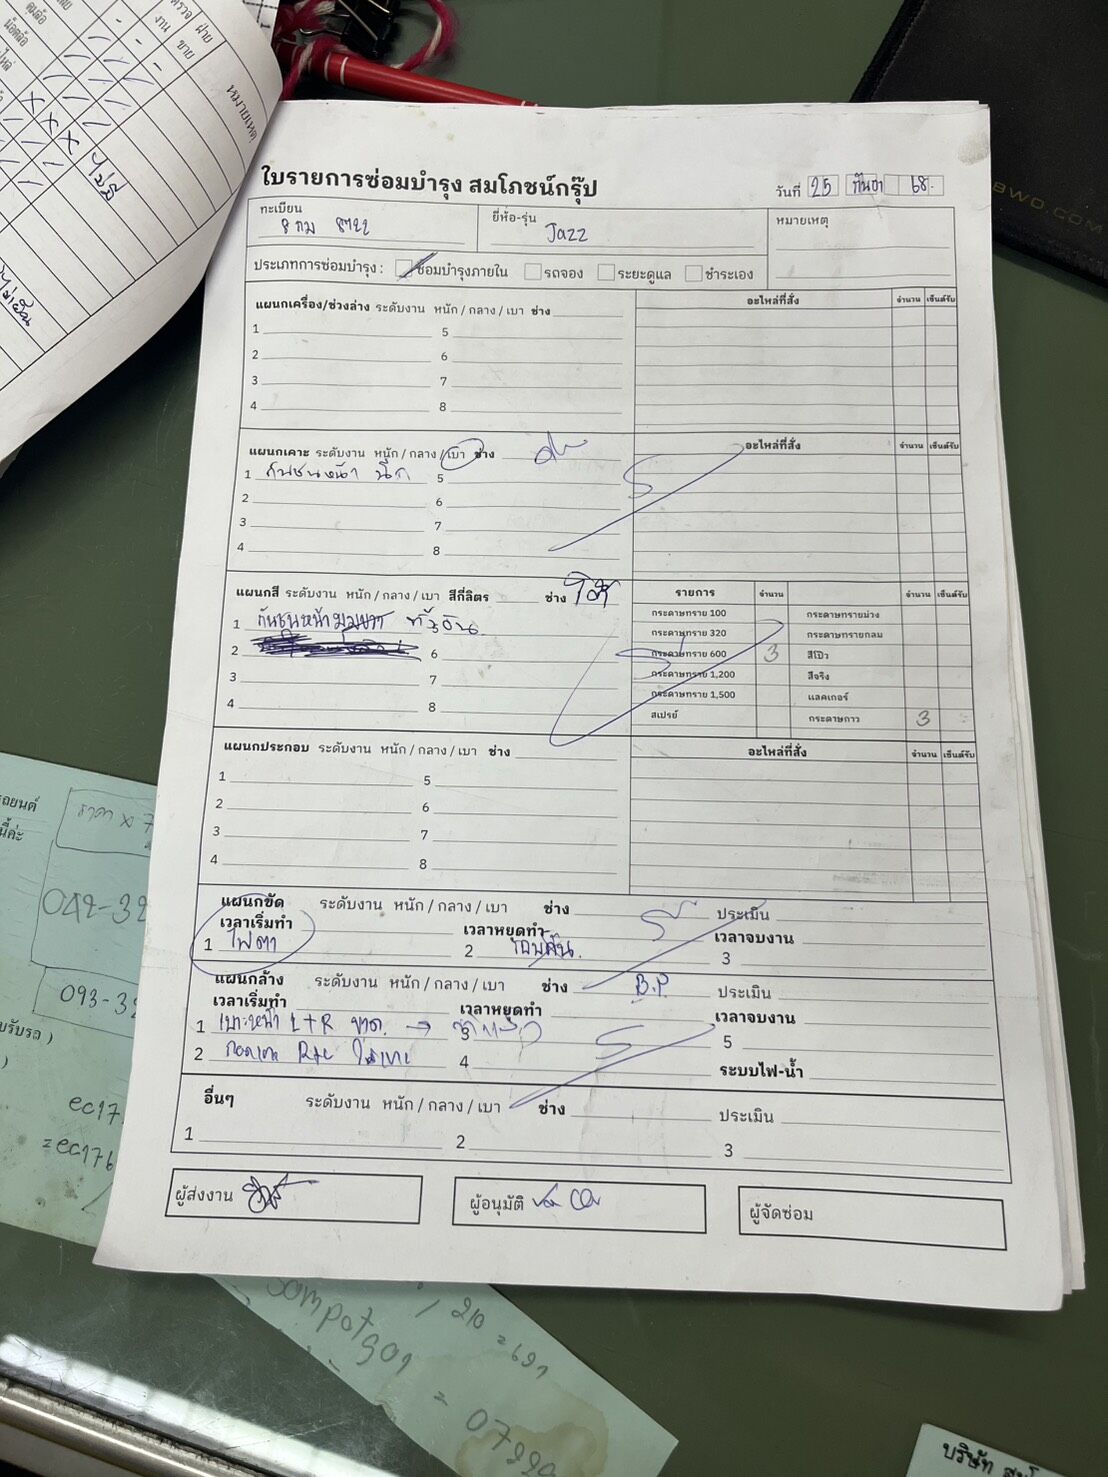 ใบรายการซ่อมบำรุง สมโภชน์กรุ๊ป
วันที่ 25 กันยา 68.
ทะเบียน
8 กม 8722
ยี่ห้อ-รุ่น
Jazz
หมายเหตุ
ประเภทการซ่อมบำรุง : ซ่อมบำรุงภายใน รถจอง ระยะดูแล ชำระเอง
แผนกเครื่อง/ช่วงล่าง ระดับงาน หนัก / กลาง / เบา ช่าง
อะไหล่ที่สั่ง จำนวน เซ็นต์รับ
1 5
2 6
3 7
4 8
แผนกเคาะ ระดับงาน หนัก / กลาง / เบา ช่าง
อะไหล่ที่สั่ง จำนวน เซ็นต์รับ
1 กันชนหน้า 5
2 6
3 7
4 8
แผนกสี ระดับงาน หนัก / กลาง / เบา สีกี่ลิตร ช่าง
รายการ จำนวน จำนวน เซ็นต์รับ
1 กันชนหน้ามุมขวา ทั้งอัน
2 6
3 7
4 8
กระดาษทราย 100 กระดาษทรายม่วง
กระดาษทราย 320 กระดาษทรายกลม
กระดาษทราย 600 3 สีโป๊ว
กระดาษทราย 1,200 สีจริง
กระดาษทราย 1,500 แลคเกอร์
สเปรย์ กระดาษกาว 3
แผนกประกอบ ระดับงาน หนัก / กลาง / เบา ช่าง
อะไหล่ที่สั่ง จำนวน เซ็นต์รับ
1 5
2 6
3 7
4 8
แผนกขัด ระดับงาน หนัก / กลาง / เบา ช่าง ประเมิน
เวลาเริ่มทำ เวลาหยุดทำ เวลาจบงาน
1 ไฟตา 2 รอบคัน. 3
แผนกล้าง ระดับงาน หนัก / กลาง / เบา ช่าง B.P. ประเมิน
เวลาเริ่มทำ เวลาหยุดทำ เวลาจบงาน
1 เบาะหน้า L+R ขาด. → 3 5
2 4 ระบบไฟ-น้ำ
อื่นๆ ระดับงาน หนัก / กลาง / เบา ช่าง ประเมิน
1 2 3
ผู้ส่งงาน
ผู้อนุมัติ
ผู้จัดซ่อม
หมายเหตุ
ไม่มี
ฝ่าย
ขาย
งาน
BWD.COM
042-32
093-32
ec17
=ec176
sompot901
210 = 691
บริษัท